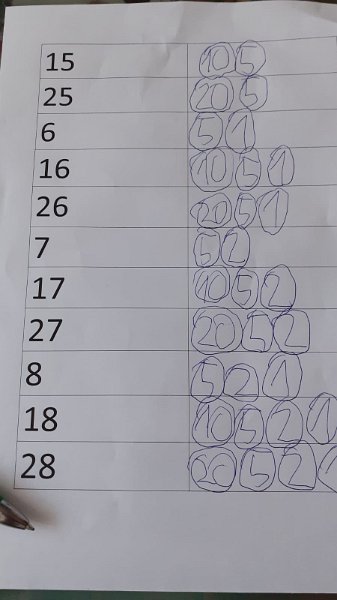 15 10 5
25 20 5
6 5 1
16 10 5 1
26 20 5 1
7 5 2
17 10 5 2
27 20 5 2
8 5 2 1
18 10 5 2 1
28 20 5 2